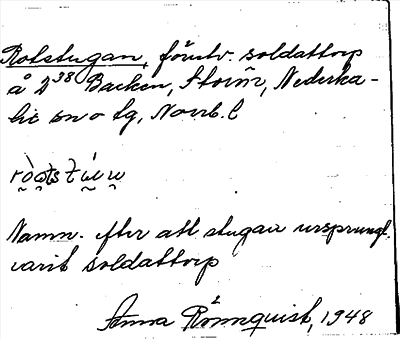 Rotstugan, förutv. soldattorp
å 1³⁸ Backen, Storön, Nederka-
lix sn o tg, Norrb. l
Namn. efter att stugan ursprungl.
varit soldattorp
Anna Rönnquist, 1948